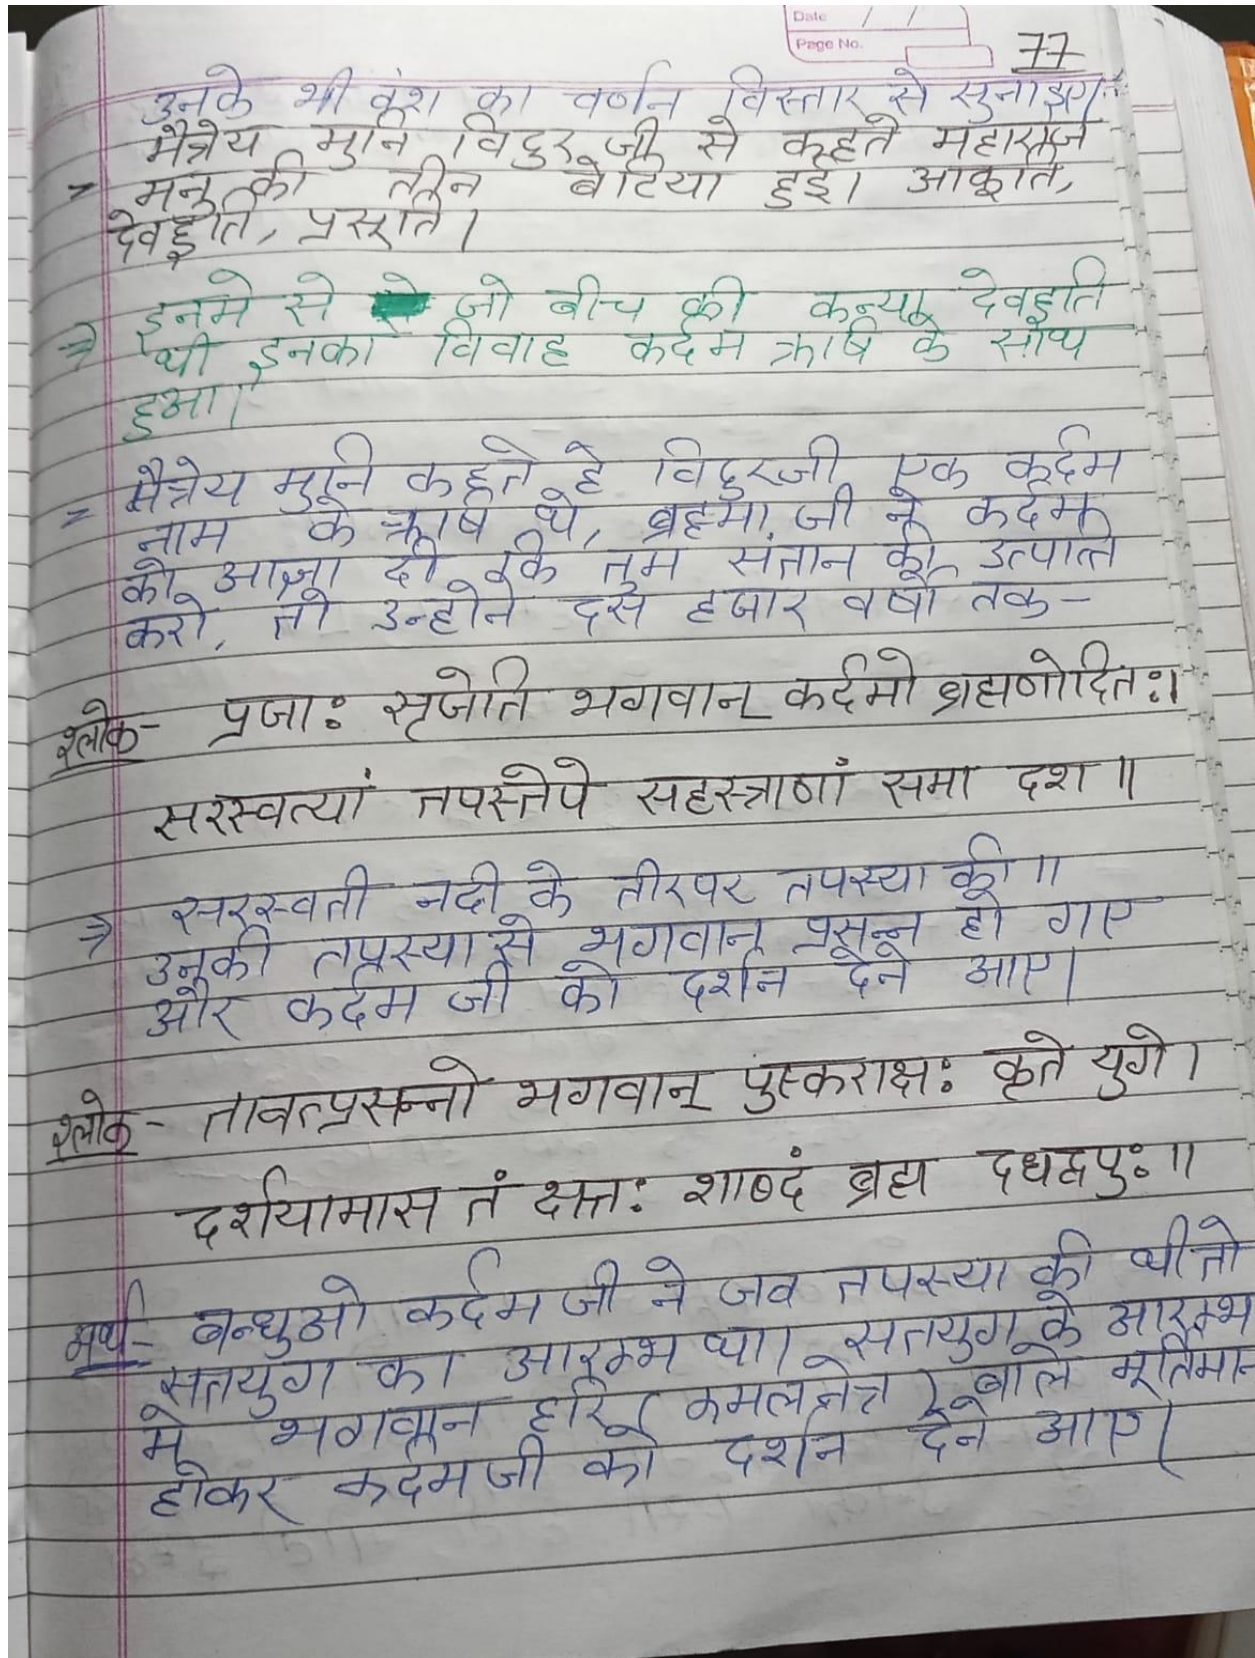 Date / /
Page No.
77
उनके भी वंश का वर्णन विस्तार से सुनाइए।
मैत्रेय मुनि विदुर जी से कहते महाराज
= मनु की तीन बेटिया हुई। आकूति,
देवहूति, प्रसूति।
⇒ इनमे से जो बीच की कन्या देवहूति
थी इनका विवाह कर्दम ऋषि के साथ
हुआ।
= मैत्रेय मुनि कहते है विदुरजी एक कर्दम
नाम के ऋषि थे, ब्रह्मा जी ने कर्दम
को आज्ञा दी कि तुम संतान की उत्पत्ति
करो, तो उन्होने दस हजार वर्षो तक-
श्लोक- प्रजाः सृजेति भगवान् कर्दमो ब्रह्मणोदितः।
सरस्वत्यां तपस्तेपे सहस्त्राणां समा दश॥
⇒ सरस्वती नदी के तीरपर तपस्या की॥
उनकी तपस्या से भगवान प्रसन्न हो गए
और कर्दम जी को दर्शन देने आए।
श्लोक- तावत्प्रसन्नो भगवान् पुष्कराक्षः कृते युगे।
दर्शयामास तं क्षत्तः शाब्दं ब्रह्म दधद्वपुः॥
अर्थ- बन्धुओ कर्दम जी ने जब तपस्या की थी तो
सतयुग का आरम्भ था। सतयुग के आरम्भ
मे भगवान हरि ( कमलनेत्र ) बाले मूर्तिमान
होकर कर्दमजी को दर्शन देने आए।